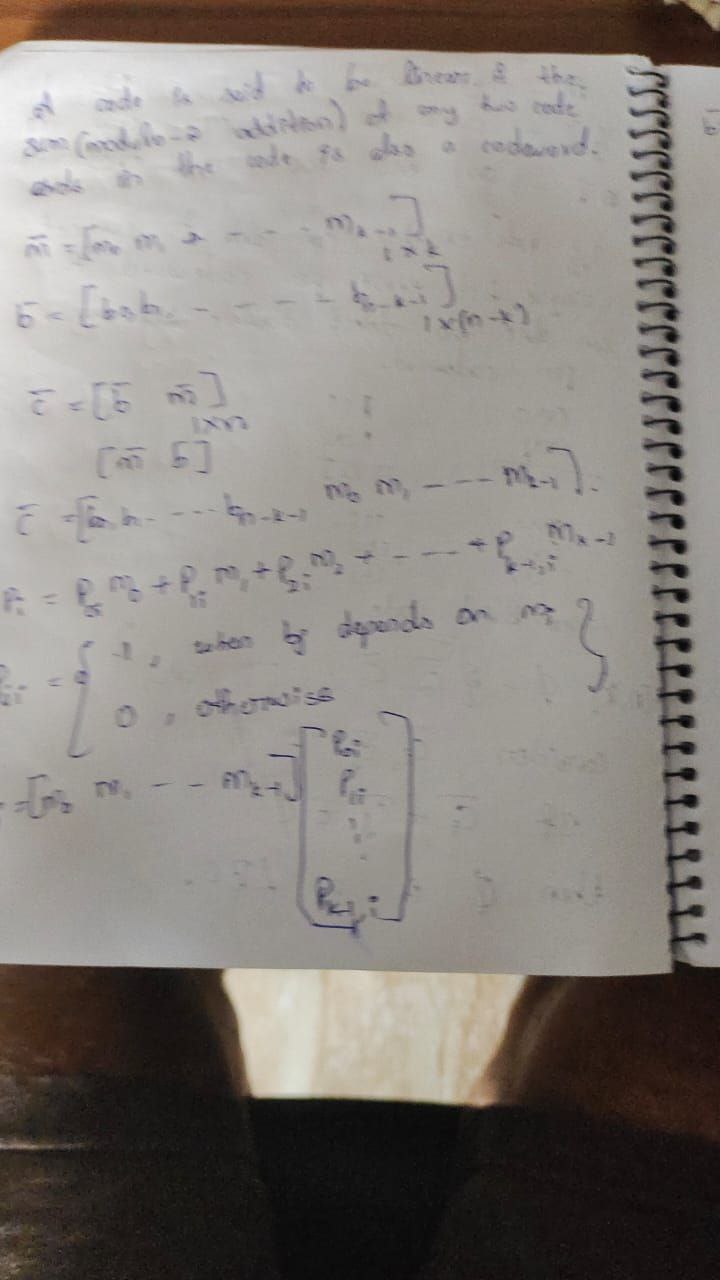 A code is said to be linear if the
sum (modulo-2 addition) of any two code
words in the code is also a codeword.
m̄ = [m₀ m₁ - - - m_{k-1}]_{1×k}
b̄ = [b₀ b₁ - - - - b_{n-k-1}]_{1×(n-k)}
c̄ = [b̄ m̄]_{1×n}
[m̄ b̄]
c̄ = [b₀ b₁ - --- b_{n-k-1} m₀ m₁ - --- m_{k-1}].
= P_{0i} m₀ + P_{1i} m₁ + P_{2i} m₂ + - --- + P_{k-1,i} m_{k-1}
= { 1, when bj depends on mi }
0, otherwise
= [m₀ m₁ - -- m_{k-1}] [P_{0i}
P_{1i}
⋮
P_{k-1,i}]